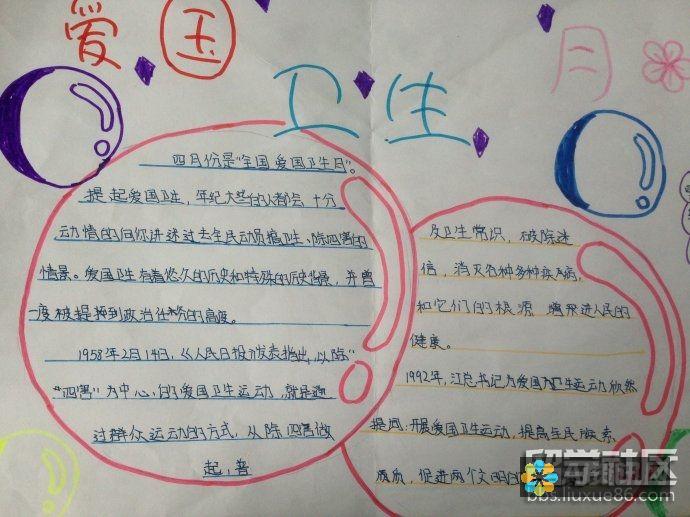 爱国
卫生
月
四月份是“全国爱国卫生月”。
提起爱国卫生，年纪大些的人都会十分
动情的向你讲述过去全民动员搞卫生、除四害的
情景。爱国卫生有着悠久的历史和特殊的历史背景，并曾
一度被提揰到政治任务的高度。
1958年2月14日，《人民日报》发表指出，以除
“四害”为中心，的爱国卫生运动，就是通
过群众运动的方式，从除四害做
起，普
及卫生常识，破除迷
信，消灭各种多种疾病，
和它们的根源 增进人民的
健康。
1992年，江总书记为爱国卫生运动欣然
提词：开展爱国卫生运动，提高全民族素
质，促进两个文明
留学社区
bbs.liuxue86.com